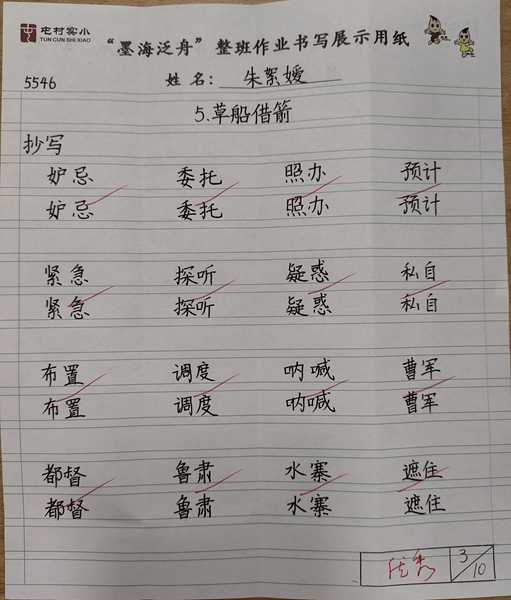 屯村实小
TUN CUN SHI XIAO
“墨海泛舟”整班作业书写展示用纸
5546
姓名: 朱絮嫒
5.草船借箭
抄写
妒忌 委托 照办 预计
妒忌 委托 照办 预计
紧急 探听 疑惑 私自
紧急 探听 疑惑 私自
布置 调度 呐喊 曹军
布置 调度 呐喊 曹军
都督 鲁肃 水寨 遮住
都督 鲁肃 水寨 遮住
优秀 3/10